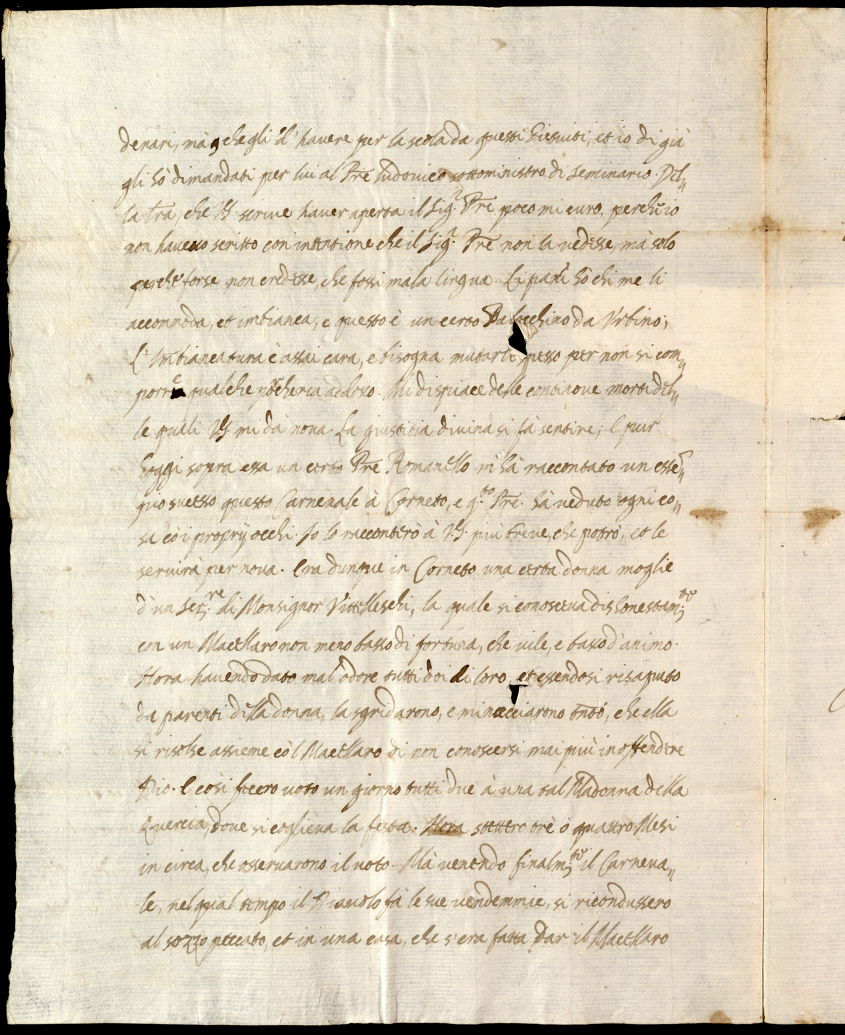 denari, mà che gli dà havere per la scola da questi Giesuiti, et io di già
gli hò dimandati per lui al Pre Ludovico sottoministro di Seminario. Del„
la lra, che VS scrive haver aperta il Sigr Pre poco mi curo, perch'io
non havevo scritto con intentione che il Sigr Pre non la vedesse, mà solo
perche forse non credesse, che fossi mala lingua. Li panni hò chi me li
accommoda, et imbianca, e questo è un certo da Urbino;
L'Imbiancatura è assai cara, e bisogna mutarli spesso per non si com„
porre qualche porcheria adosso. Mi dispiace delle continove morti del„
le quali VS mi dà nova. La giustitia divina si fà sentire; E pur
hoggi sopra essa un certo Pre Romanello m'hà raccontato un esse˜
pio sucesso questo Carnevale à Corneto, e q.to Pre hà veduto ogni co„
sa cò i proprij occhi. Io lo racconterò à VS più breve, che potrò, et le
servirà per nova. Era dunque in Corneto una certa donna moglie
d'un Ser.re di Monsignor Vitelleschi, la quale si conosceva dishonestam.te
con un Macellaro non meno basso di fortuna, che vile, e basso d'animo.
Hora havendo dato mal'odore tutti doi di loro, et essendosi risaputo
da parenti della donna, la sgridarono, e minacciarono tanto, che ella
si risolse assieme cò l Macellaro di non conoscersi mai più in offendere
Dio. E così fecero voto un giorno tutti due à una tal Madonna della
Quercia, dove si coglieva la festa. Hora stettero trè ò quattro Mesi
in circa, che osservarono il voto. Mà venendo finalm.te il Carneva„
le, nel qual tempo il Diavolo fà le sue vendemmie, si ricondussero
al sozzo peccato, et in una casa, che s'era fatta dar il Macellaro